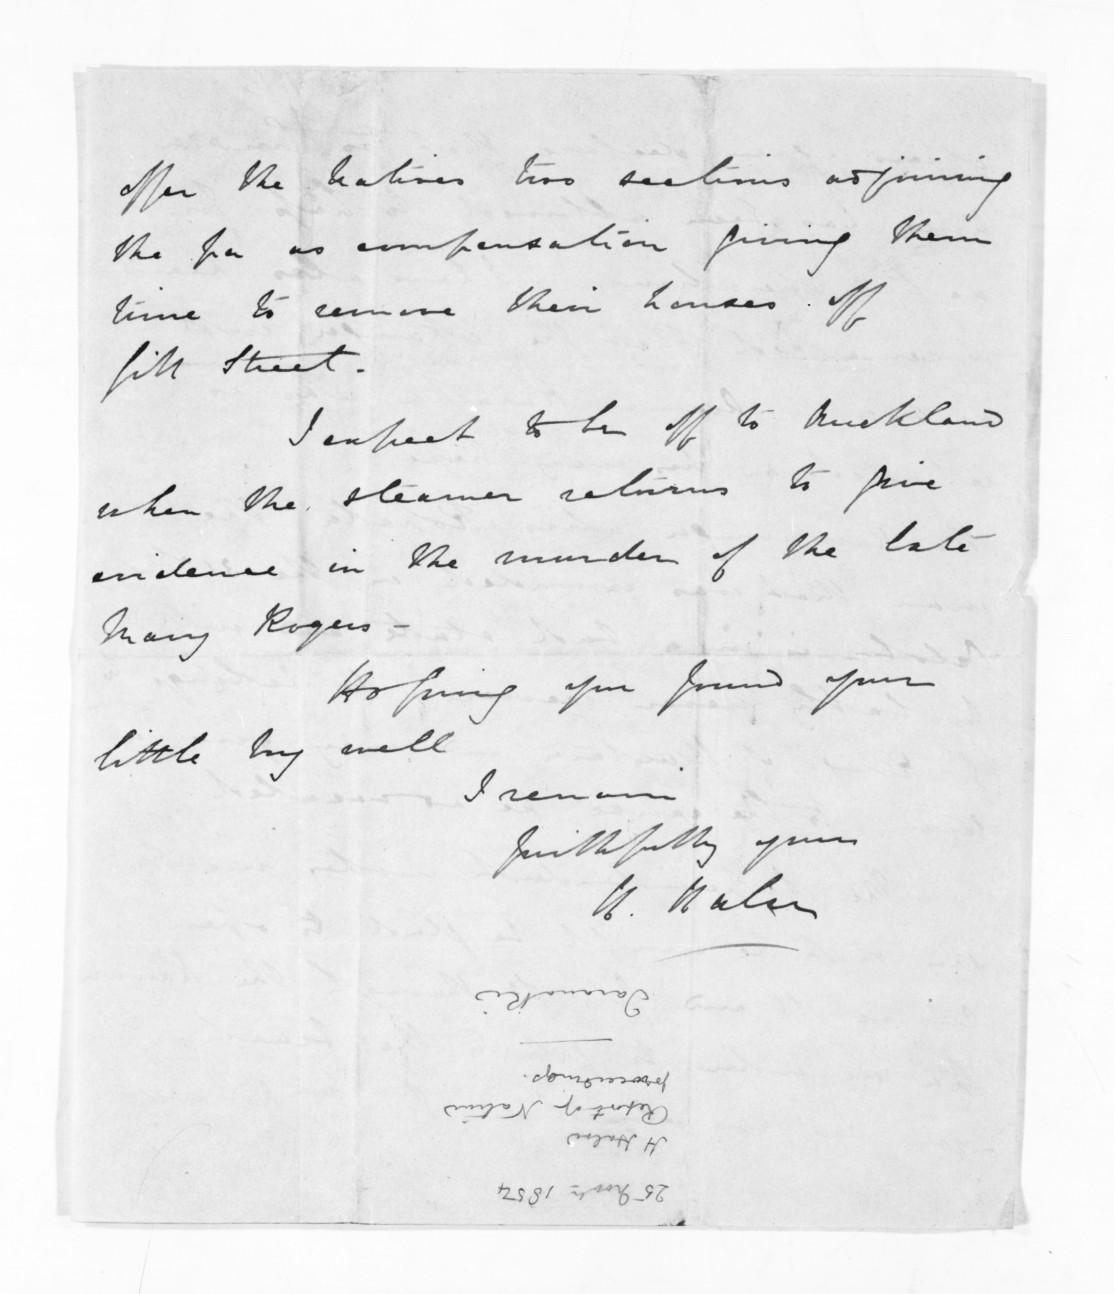 offer the Natives two sections adjoining
the pa as compensation giving them
time to remove their houses off
Gill Street.
I expect to be off to Auckland
when the steamer returns to give
evidence in the murder of the late
Mary Rogers -
Hoping you found your
little boy well
I remain
faithfully yours
H. Halse
25 Novr 1854
H Halse
Report of Native
proceedings.
Taranaki